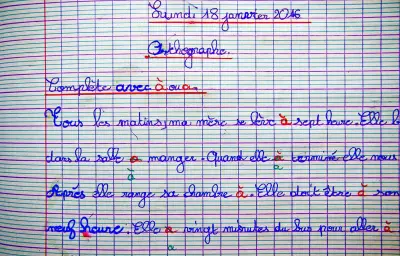 Lundi 18 janvier 2016
Orthographe.
Complète avec à ou a.
Tous les matins, ma mère se lève à sept heure. Elle
dans la salle a manger. Quand elle à terminé elle nous
à a
Après elle range sa chambre à. Elle doit être à son
neuf heure. Elle a vingt minutes du bus pour aller à
a